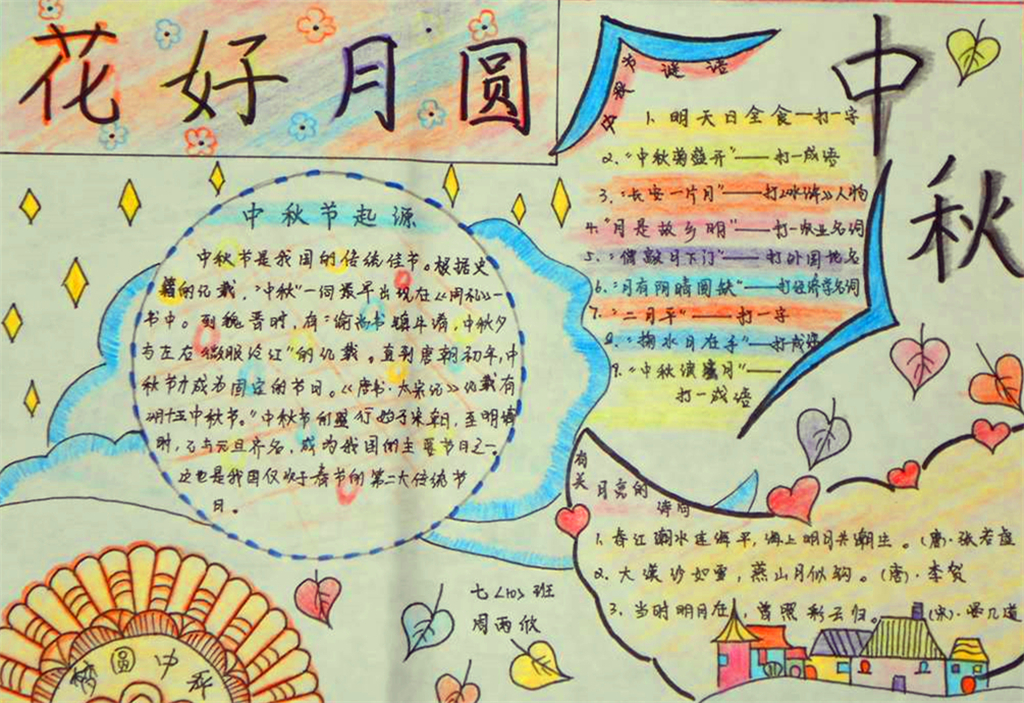 花好月圆
中秋
中秋节起源
中秋节是我国的传统佳节。根据史
籍的记载，“中秋”一词最早出现在《周礼》一
书中。到魏晋时，有“谕尚书镇牛渚，中秋夕
与左右微服泛江”的记载。直到唐朝初年，中
秋节才成为固定的节日。《唐书·太宗记》记载有
“八月十五中秋节。”中秋节的盛行始于宋朝，至明清
时，已与元旦齐名，成为我国的主要节日之一。
这也是我国仅次于春节的第二大传统节
日。
中秋为谜语
1、明天日全食——打一字
2、“中秋菊盛开”——打一成语
3、“长安一片月”——打《水浒》人物
4、“月是故乡明”——打一职业名词
5、“僧敲月下门”——打外国地名
6、“月有阴晴圆缺”——打经济学名词
7、“二月平”——打一字
8、“掬水月在手”——打成语
9、“中秋度蜜月”——
打一成语
有关月亮的
诗句
1、春江潮水连海平，海上明月共潮生。（唐）·张若虚
2、大漠沙如雪，燕山月似钩。（唐）·李贺
3、当时明月在，曾照彩云归。（宋）·晏几道
七<10>班
周雨欣
梦圆中秋